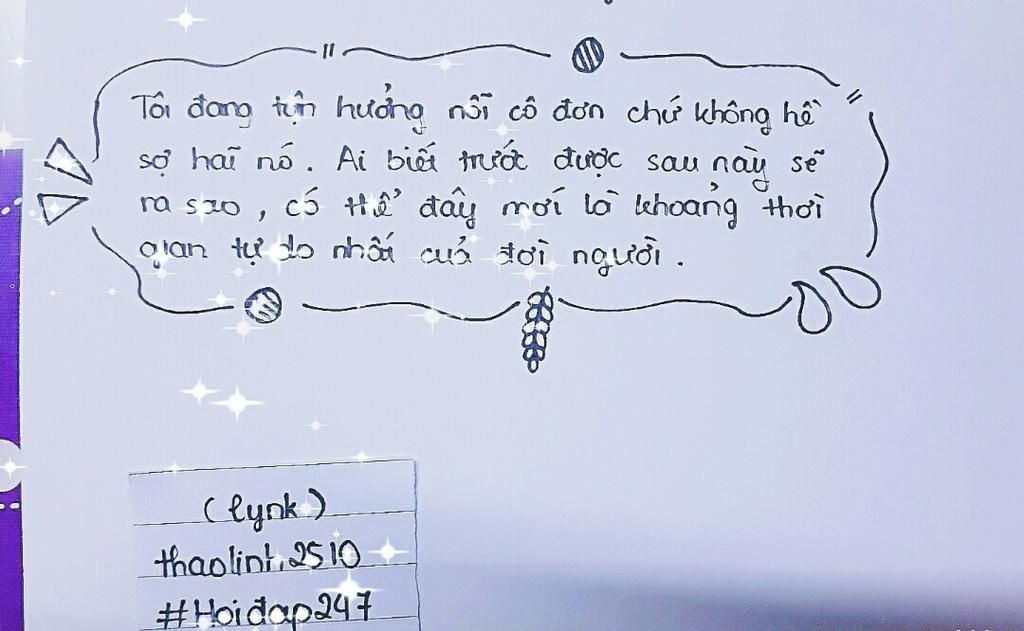 Tôi đang tận hưởng nỗi cô đơn chứ không hề
sợ hãi nó. Ai biết trước được sau này sẽ
ra sao, có thể đây mới là khoảng thời
gian tự do nhất của đời người.
(lynk)
thaolinh2510
#Hoiđap247